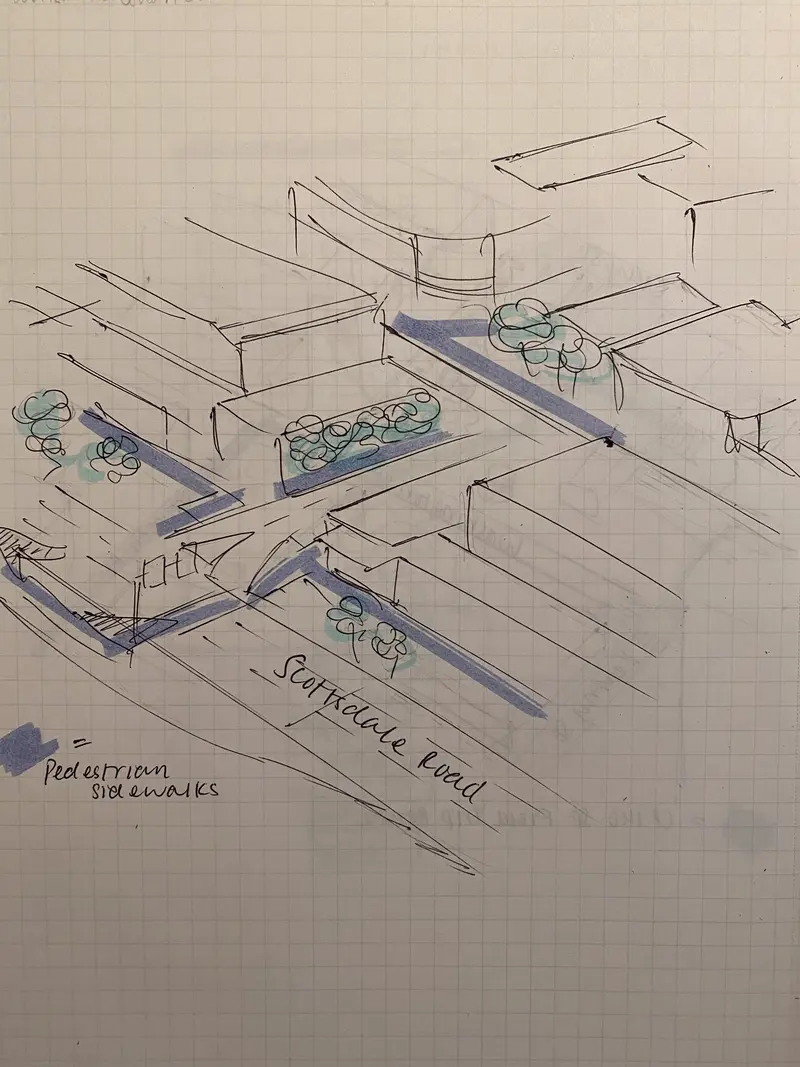 Scottsdale Road
=
Pedestrian
sidewalks